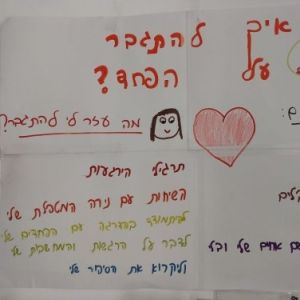 איך להתגבר
על הפחד?
מה עזר לי להתגבר?
תרגילי הירגעות
השיחות עם נורה המטפלת שלי
להתמודד בהדרגה עם הפחדים שלי
לדבר על הרגשות והמחשבות שלי
וליקרוא את הסיפור שלי